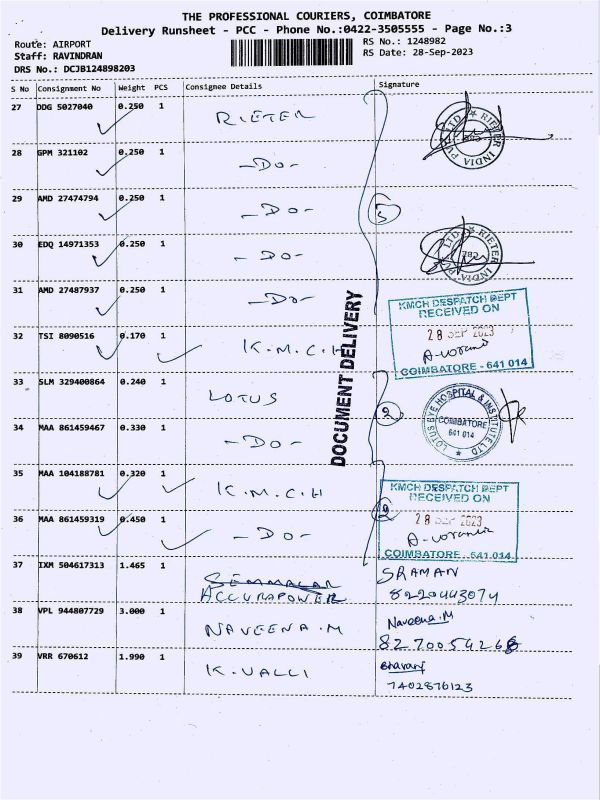 THE PROFESSIONAL COURIERS, COIMBATORE
Delivery Runsheet - PCC - Phone No.:0422-3505555 - Page No.:3
Route: AIRPORT
Staff: RAVINDRAN
DRS No.: DCJB124898203
RS No.: 1248982
RS Date: 28-Sep-2023
S No Consignment No Weight PCS Consignee Details Signature
27 DDG 5027040 0.250 1 RIETER
RIETER INDIA PVT LTD
28 GPM 321102 0.250 1 -Do-
29 AMD 27474794 0.250 1 -Do-
5
30 EDQ 14971353 0.250 1 -Do-
RIETER INDIA PVT LTD
31 AMD 27487937 0.250 1 -Do-
DOCUMENT DELIVERY
KMCH DESPATCH DEPT
RECEIVED ON
28 SEP 2023
COIMBATORE - 641 014
32 TSI 8090516 0.170 1 K.M.C.H
33 SLM 329400864 0.240 1 LOTUS
2
LOTUS EYE HOSPITAL & INSTITUTE LTD
COIMBATORE
641 014
34 MAA 861459467 0.330 1 -Do-
35 MAA 104188781 0.320 1 K.M.C.H
2
KMCH DESPATCH DEPT
RECEIVED ON
28 SEP 2023
COIMBATORE - 641 014
36 MAA 861459319 0.450 1 -Do-
37 IXM 504617313 1.465 1 ACCURAPOWER
SRAMAN
8220443074
38 VPL 944807729 3.000 1 NAVEENA.M
Naveena.M
8270054268
39 VRR 670612 1.990 1 K.VALLI
7402876123